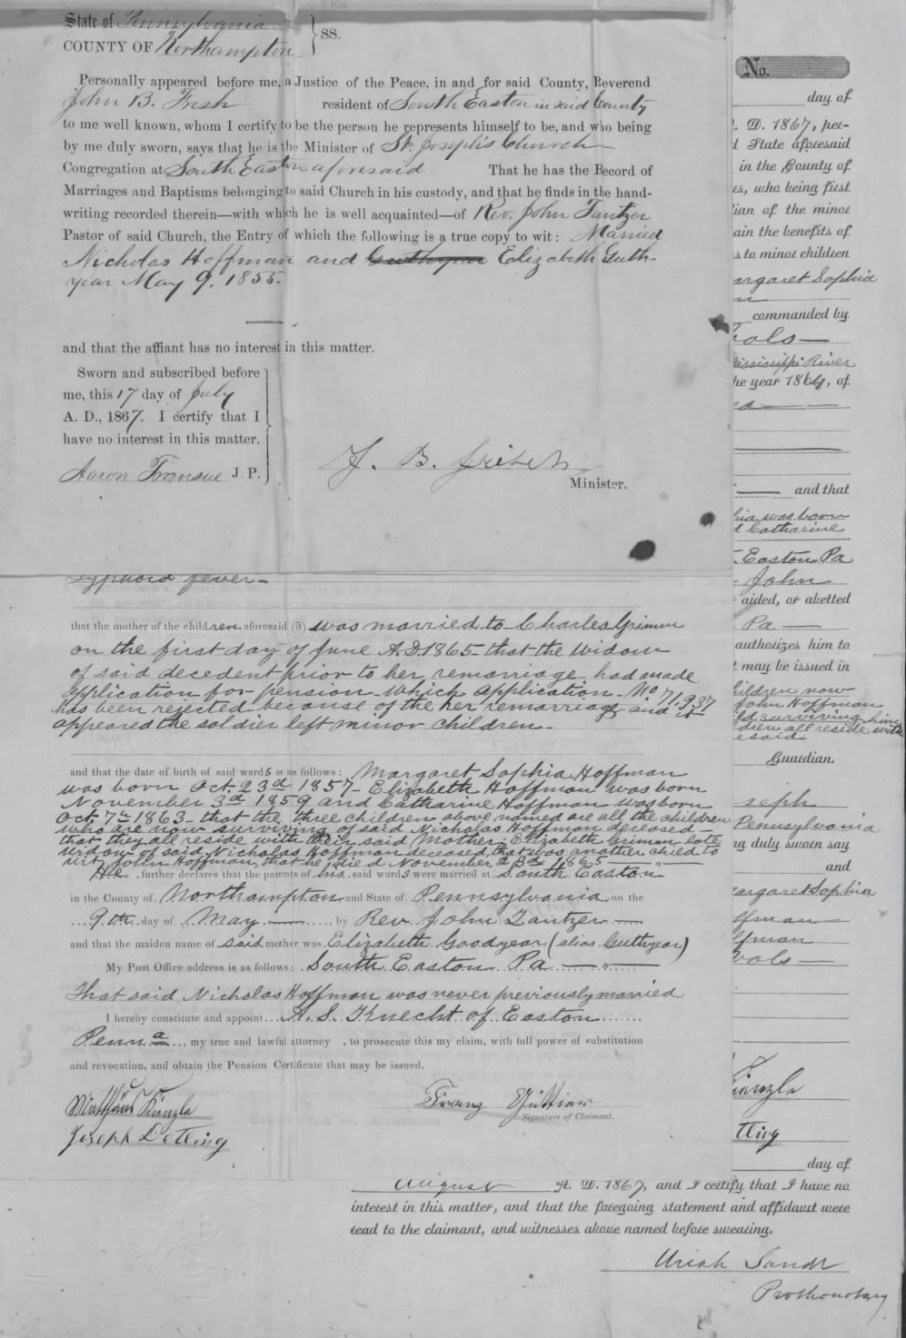 State of Pennsylvania
COUNTY OF Northampton } ss.
Personally appeared before me, a Justice of the Peace, in and for said County, Reverend
John B. Fresh resident of South Easton in said County
to me well known, whom I certify to be the person he represents himself to be, and who being
by me duly sworn, says that he is the Minister of St. Joseph's Church
Congregation at South Easton aforesaid That he has the Record of
Marriages and Baptisms belonging to said Church in his custody, and that he finds in the hand-
writing recorded therein—with which he is well acquainted—of Rev. John Tantzer
Pastor of said Church, the Entry of which the following is a true copy to wit: Married
Nicholas Hoffman and Elizabeth Guth-
year May 9. 1855.
and that the affiant has no interest in this matter.
Sworn and subscribed before
me, this 17 day of July
A. D., 1867. I certify that I
have no interest in this matter.
Aaron Transue J. P.
J. B. Fritsch
Minister.
typhoid fever-
that the mother of the children aforesaid (5) was married to Charles Grimm
on the first day of June A.D. 1865 - that the widow
of said decedent prior to her remarriage had made
application for pension - which application No 71.937
has been rejected because of the her remarriage and it
appeared the soldier left minor children -
and that the date of birth of said wards is as follows: Margaret Sophia Hoffman
was born Oct. 23d 1857 - Elizabeth Hoffman was born
November 3d 1859 and Catharine Hoffman was born
Oct. 7th 1863 - that the three children above named are all the children
who are now surviving of said Nicholas Hoffman deceased -
that they all reside with their said Mother - Elizabeth Griman late
widow of said Nicholas Hoffman deceased, that was another child to
wit John Hoffman, that he died November 23d 1865
He further declares that the parents of his said wards were married at South Easton
in the County of Northampton and State of Pennsylvania on the
9th day of May by Rev. John Tantzer
and that the maiden name of said mother was Elizabeth Goodyear (alias Guthyear)
My Post Office address is as follows: South Easton Pa
That said Nicholas Hoffman was never previously married
I hereby constitute and appoint A. S. Knecht of Easton
Penna, my true and lawful attorney, to prosecute this my claim, with full power of substitution
and revocation, and obtain the Pension Certificate that may be issued.
Matthäus Künzle
Joseph Detling
Franz
Signature of Claimant.
No.
day of
A. D. 1867, per-
d State aforesaid
in the County of
es, who being first
dian of the minor
ain the benefits of
s to minor children
argaret Sophia
commanded by
ols
ississippi River
he year 1864, of
and that
hia was born
d Catharine
Easton Pa
John
aided, or abetted
Pa
authorizes him to
t may be issued in
hildren now
John Hoffman
ld surviving him
dren all reside with
esaid
Guardian.
seph
Pennsylvania
ng duly sworn say
and
argaret Sophia
ffman
ffman
vols
Künzle
tling
day of
August A. D. 1867, and I certify that I have no
interest in this matter, and that the foregoing statement and affidavit were
read to the claimant, and witnesses above named before swearing.
Uriah Sandt
Prothonotary